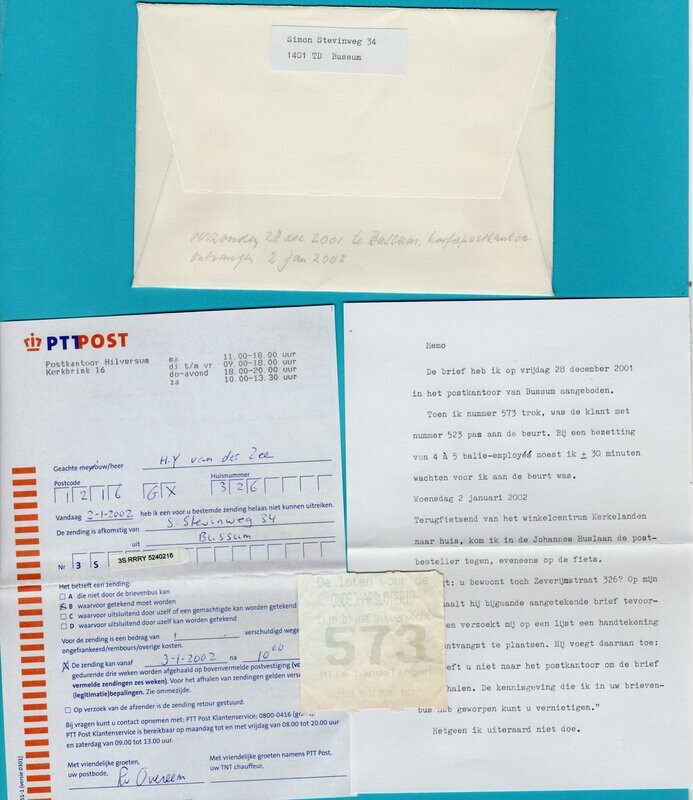 Simon Stevinweg 34
1401 TD Bussum
verzonden 28 dec 2001 te Bussum, hoofdpostkantoor
ontvangen 2 jan 2002
PTT POST
Postkantoor Hilversum
Kerkbrink 16
ma 11.00-18.00 uur
di t/m vr 09.00-18.00 uur
do-avond 18.00-20.00 uur
za 10.00-13.30 uur
Geachte mevrouw/heer H.Y van der Zee
Postcode Huisnummer
1216 GX 326
Vandaag 2-1-2002 heb ik een voor u bestemde zending helaas niet kunnen uitreiken.
De zending is afkomstig van S Stevinweg 34
uit Bussum
Nr 3S 3S RRRY 5240216
Het betreft een zending:
A die niet door de brievenbus kan
B waarvoor getekend moet worden
C waarvoor uitsluitend door uzelf of een gemachtigde kan worden getekend
D waarvoor uitsluitend door uzelf kan worden getekend
Voor de zending is een bedrag van f , verschuldigd wege
ongefrankeerd/rembours/overige kosten.
De zending kan vanaf 3-1-2002 na 10 00
gedurende drie weken worden afgehaald op bovenvermelde postvestiging (vo
vermelde zendingen zes weken). Voor het afhalen van zendingen gelden vers
(legitimatie)bepalingen. Zie ommezijde.
Op verzoek van de afzender is de zending retour gestuurd.
Bij vragen kunt u contact opnemen met: PTT Post Klantenservice; 0800-0416 (gra
PTT Post Klantenservice is bereikbaar op maandag tot en met vrijdag van 08.00 tot 20.00 uur
en zaterdag van 09.00 tot 13.00 uur.
Met vriendelijke groeten,
uw postbode,
Met vriendelijke groeten namens PTT Post,
uw TNT chauffeur,
Overeem
De loten voor de
573
Memo
De brief heb ik op vrijdag 28 december 2001
in het postkantoor van Bussum aangeboden.
Toen ik nummer 573 trok, was de klant met
nummer 523 pas aan de beurt. Bij een bezetting
van 4 à 5 balie-employéé moest ik ± 30 minuten
wachten voor ik aan de beurt was.
Woensdag 2 januari 2002
Terugfietsend van het winkelcentrum Kerkelanden
naar huis, kom ik in de Johannes Huslaan de post-
besteller tegen, eveneens op de fiets.
t: u bewoont toch Zeverijnstraat 326? Op mijn
aalt hij bijgaande aangetekende brief tevoor-
en verzoekt mij op een lijst een handtekening
ontvangst te plaatsen. Hij voegt daaraan toe:
eft u niet naar het postkantoor om de brief
halen. De kennisgeving die ik in uw brieven-
bus heb geworpen kunt u vernietigen."
Hetgeen ik uiteraard niet doe.